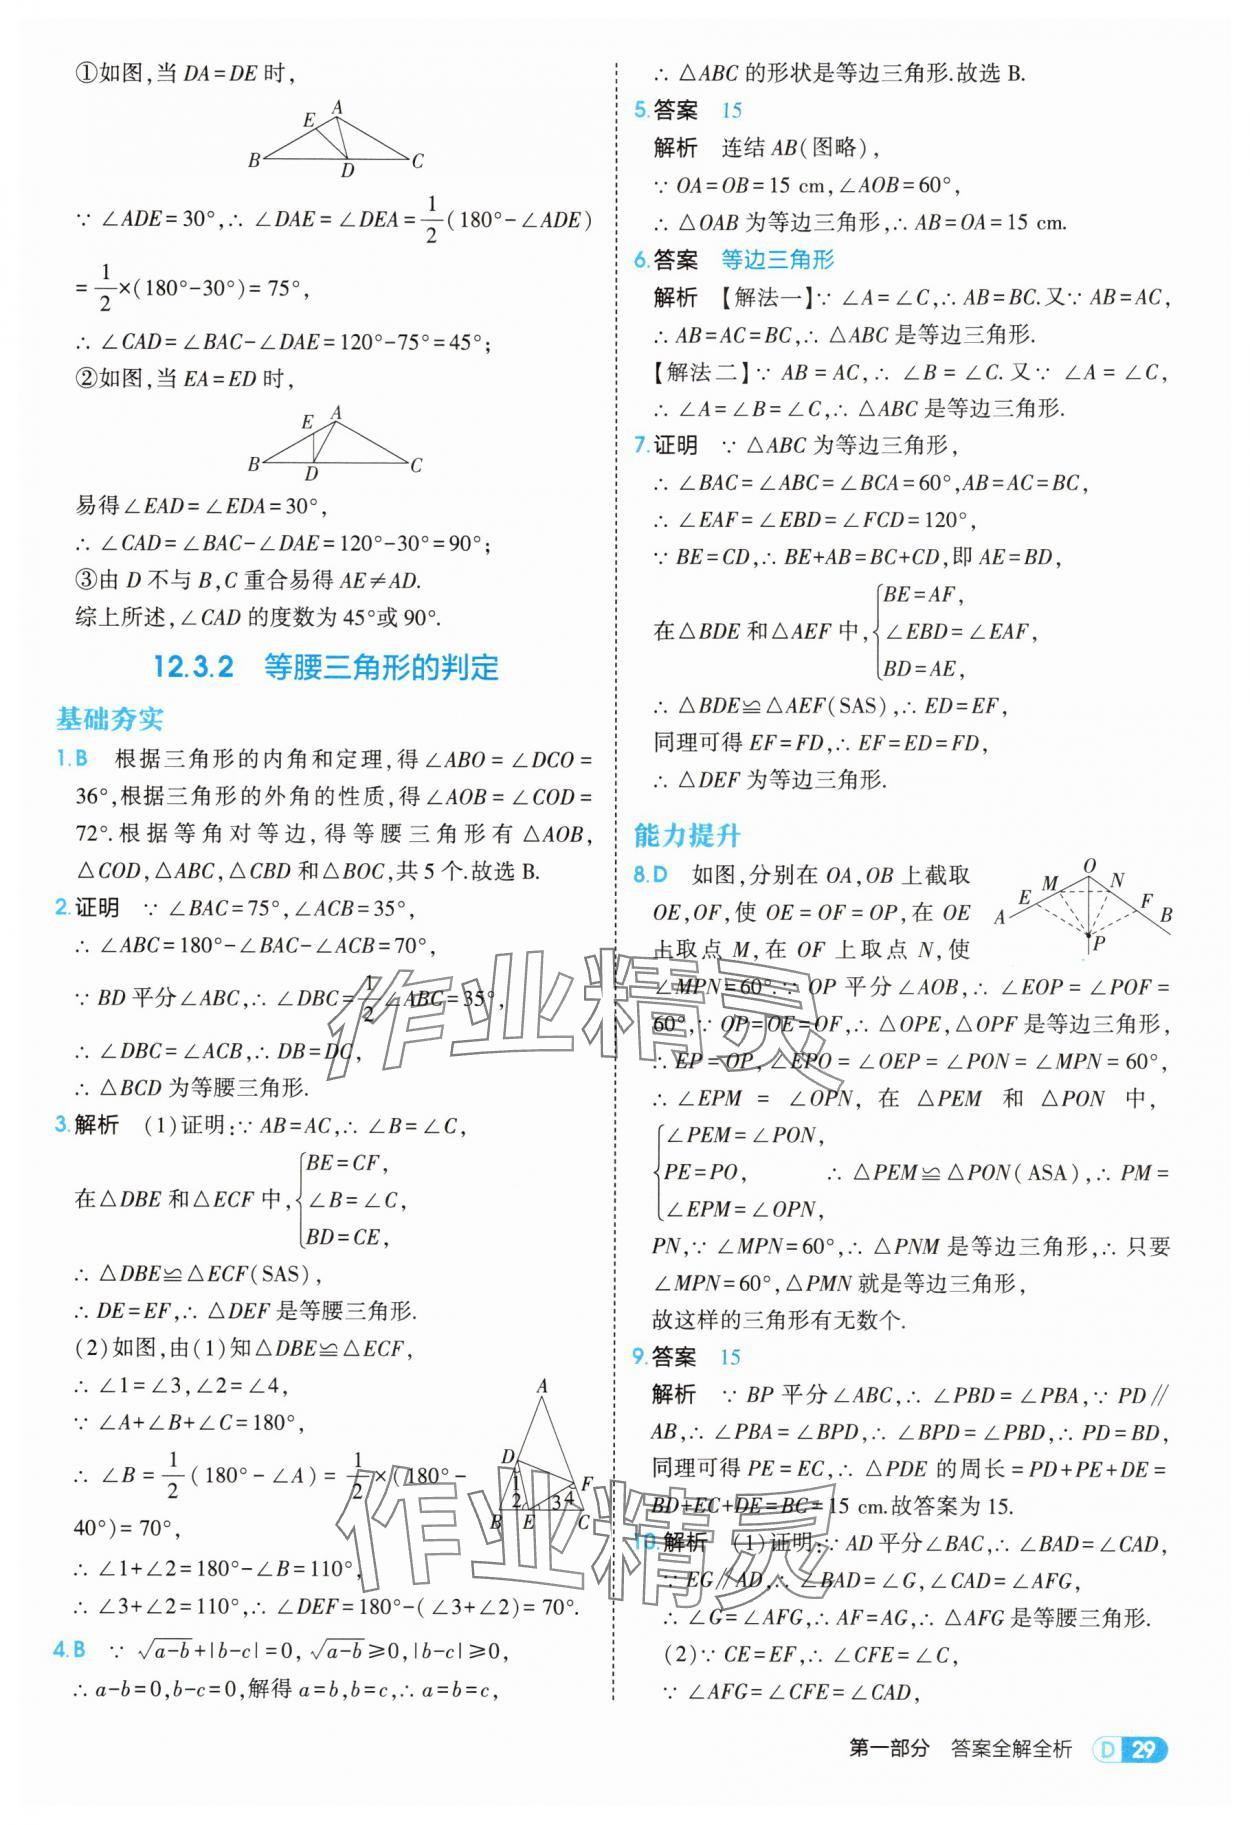 ①如图,当 DA=DE 时,
A
E
B
D
C
∵ ∠ADE=30°,∴ ∠DAE=∠DEA=1/2(180°-∠ADE)
=1/2×(180°-30°)=75°,
∴ ∠CAD=∠BAC-∠DAE=120°-75°=45°;
②如图,当 EA=ED 时,
E A
B
D
C
易得∠EAD=∠EDA=30°,
∴ ∠CAD=∠BAC-∠DAE=120°-30°=90°;
③由 D 不与 B,C 重合易得 AE≠AD.
综上所述,∠CAD 的度数为 45°或 90°.
12.3.2 等腰三角形的判定
基础夯实
1.B 根据三角形的内角和定理,得∠ABO=∠DCO=
36°,根据三角形的外角的性质,得∠AOB=∠COD=
72°.根据等角对等边,得等腰三角形有△AOB,
△COD,△ABC,△CBD 和△BOC,共 5 个.故选 B.
2.证明 ∵ ∠BAC=75°,∠ACB=35°,
∴ ∠ABC=180°-∠BAC-∠ACB=70°,
∵ BD 平分∠ABC,∴ ∠DBC=1/2∠ABC=35°,
∴ ∠DBC=∠ACB,∴ DB=DC,
∴ △BCD 为等腰三角形.
3.解析 (1)证明:∵ AB=AC,∴ ∠B=∠C,
BE=CF,
在△DBE 和△ECF 中,{∠B=∠C,
BD=CE,
∴ △DBE≌△ECF(SAS),
∴ DE=EF,∴ △DEF 是等腰三角形.
(2)如图,由(1)知△DBE≌△ECF,
∴ ∠1=∠3,∠2=∠4,
∵ ∠A+∠B+∠C=180°,
∴ ∠B=1/2(180°-∠A)=1/2×(180°-
40°)=70°,
A
D
1
F
2
3
4
B E C
∴ ∠1+∠2=180°-∠B=110°,
∴ ∠3+∠2=110°,∴ ∠DEF=180°-(∠3+∠2)=70°.
4.B ∵ √(a-b)+|b-c|=0,√(a-b)≥0,|b-c|≥0,
∴ a-b=0,b-c=0,解得 a=b,b=c,∴ a=b=c,
∴ △ABC 的形状是等边三角形.故选 B.
5.答案 15
解析 连结 AB(图略),
∵ OA=OB=15 cm,∠AOB=60°,
∴ △OAB 为等边三角形,∴ AB=OA=15 cm.
6.答案 等边三角形
解析 【解法一】∵ ∠A=∠C,∴ AB=BC.又∵ AB=AC,
∴ AB=AC=BC,∴ △ABC 是等边三角形.
【解法二】∵ AB=AC,∴ ∠B=∠C.又∵ ∠A=∠C,
∴ ∠A=∠B=∠C,∴ △ABC 是等边三角形.
7.证明 ∵ △ABC 为等边三角形,
∴ ∠BAC=∠ABC=∠BCA=60°,AB=AC=BC,
∴ ∠EAF=∠EBD=∠FCD=120°,
∵ BE=CD,∴ BE+AB=BC+CD,即 AE=BD,
BE=AF,
在△BDE 和△AEF 中,{∠EBD=∠EAF,
BD=AE,
∴ △BDE≌△AEF(SAS),∴ ED=EF,
同理可得 EF=FD,∴ EF=ED=FD,
∴ △DEF 为等边三角形.
能力提升
8.D 如图,分别在 OA,OB 上截取
OE,OF,使 OE=OF=OP,在 OE
上取点 M,在 OF 上取点 N,使
O
M N
E F
A B
P
∠MPN=60°.∵ OP 平分∠AOB,∴ ∠EOP=∠POF=
60°,∵ OP=OE=OF,∴ △OPE,△OPF 是等边三角形,
∴ EP=OP,∠EPO=∠OEP=∠PON=∠MPN=60°,
∴ ∠EPM=∠OPN,在△PEM 和△PON 中,
∠PEM=∠PON,
{PE=PO, ∴ △PEM≌△PON(ASA),∴ PM=
∠EPM=∠OPN,
PN,∵ ∠MPN=60°,∴ △PNM 是等边三角形,∴ 只要
∠MPN=60°,△PMN 就是等边三角形,
故这样的三角形有无数个.
9.答案 15
解析 ∵ BP 平分∠ABC,∴ ∠PBD=∠PBA,∵ PD∥
AB,∴ ∠PBA=∠BPD,∴ ∠BPD=∠PBD,∴ PD=BD,
同理可得 PE=EC,∴ △PDE 的周长=PD+PE+DE=
BD+EC+DE=BC=15 cm.故答案为 15.
10.解析 (1)证明:∵ AD 平分∠BAC,∴ ∠BAD=∠CAD,
∵ EG∥AD,∴ ∠BAD=∠G,∠CAD=∠AFG,
∴ ∠G=∠AFG,∴ AF=AG,∴ △AFG 是等腰三角形.
(2)∵ CE=EF,∴ ∠CFE=∠C,
∵ ∠AFG=∠CFE=∠CAD,
作业精灵
作业精灵
第一部分 答案全解全析 D 29